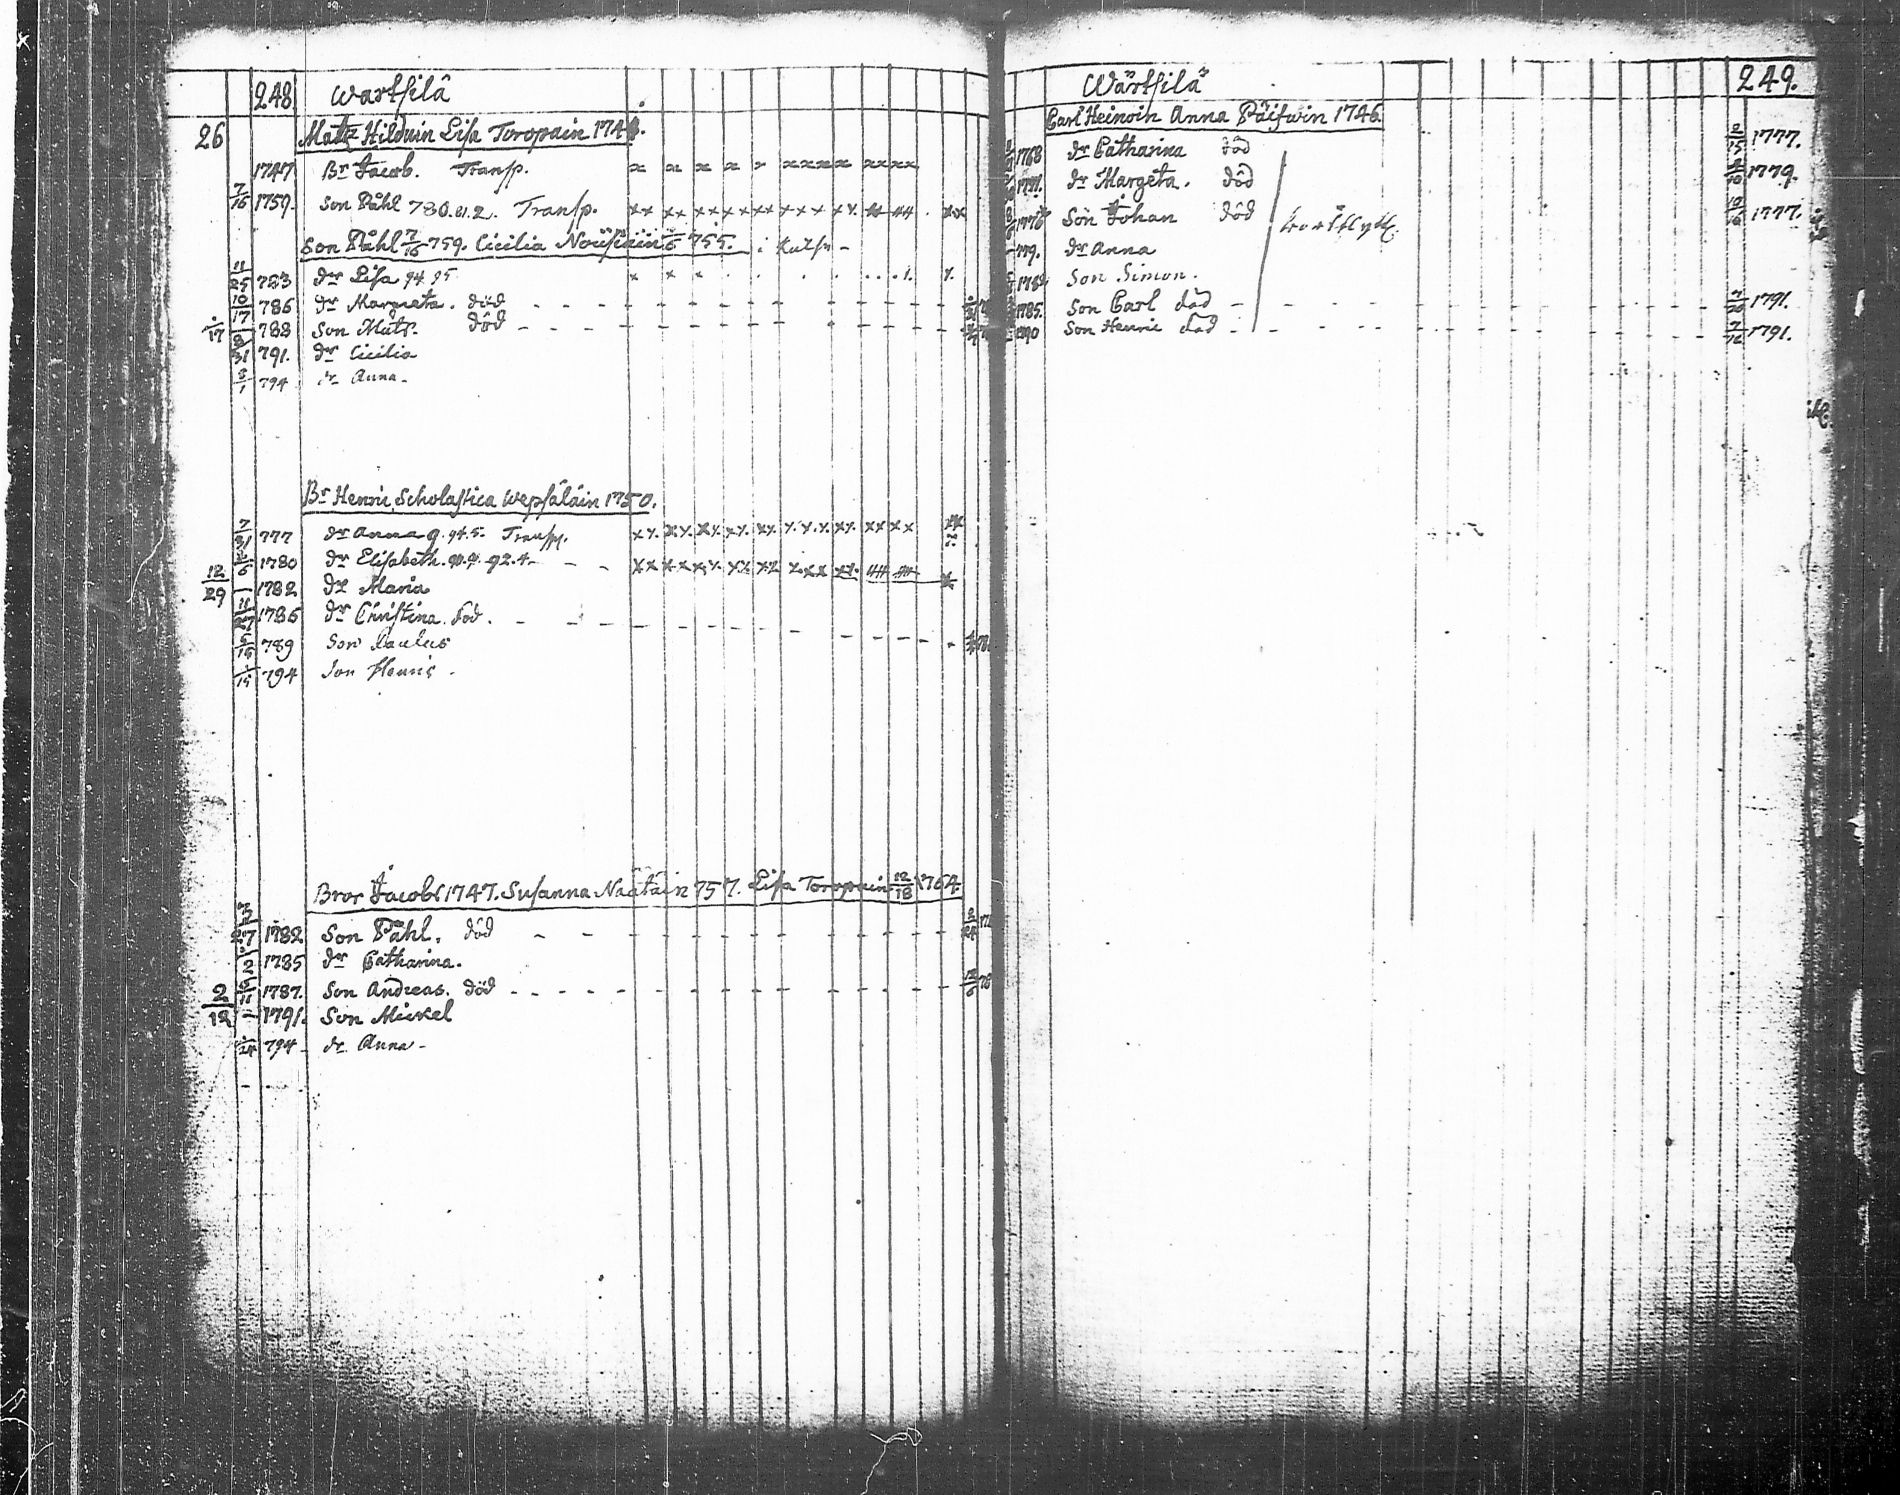 248 Wartsilâ
26 Matz Hilduin Lisa Toropain 174
1747 Br Jacob. Transp.
7/16 1759. Son Påhl 780.81.2. Transp.
Son Påhl 7/16 759. Cicilia Nousiain 755.
11/25 783 dr Lisa 94 95
10/17 786 dr Margreta. död
788 Son Mats. död
791. dr Cicilia
3/1 794 dr Anna -
Br Henric Scholastica Wepsäläin 1750.
7/31 777 dr Anna 9. 94.5. Transp.
1780 dr Elisabeth. 92.4
12/29 1782 dr Maria
11/27 1786 dr Christina. död.
789 Son Paulus
794 Son Henric
Bror Jacob 1747. Susanna Naatain 757. Lisa Toropain 12/18 1764.
1782 Son Påhl. död
1785 dr Catharina.
1787. Son Andreas. död
2/12 1791. Son Mickel
/24 794 dr Anna -
Wärtsilä 249.
Carl Heinoin Anna Päifwin 1746
1768 dr Catharina död 1777.
1771. dr Margeta. död 1779.
Son Johan död 1777.
779. dr Anna
Son Simon.
1785. Son Carl död 1791.
1790 Son Henric död 1791.